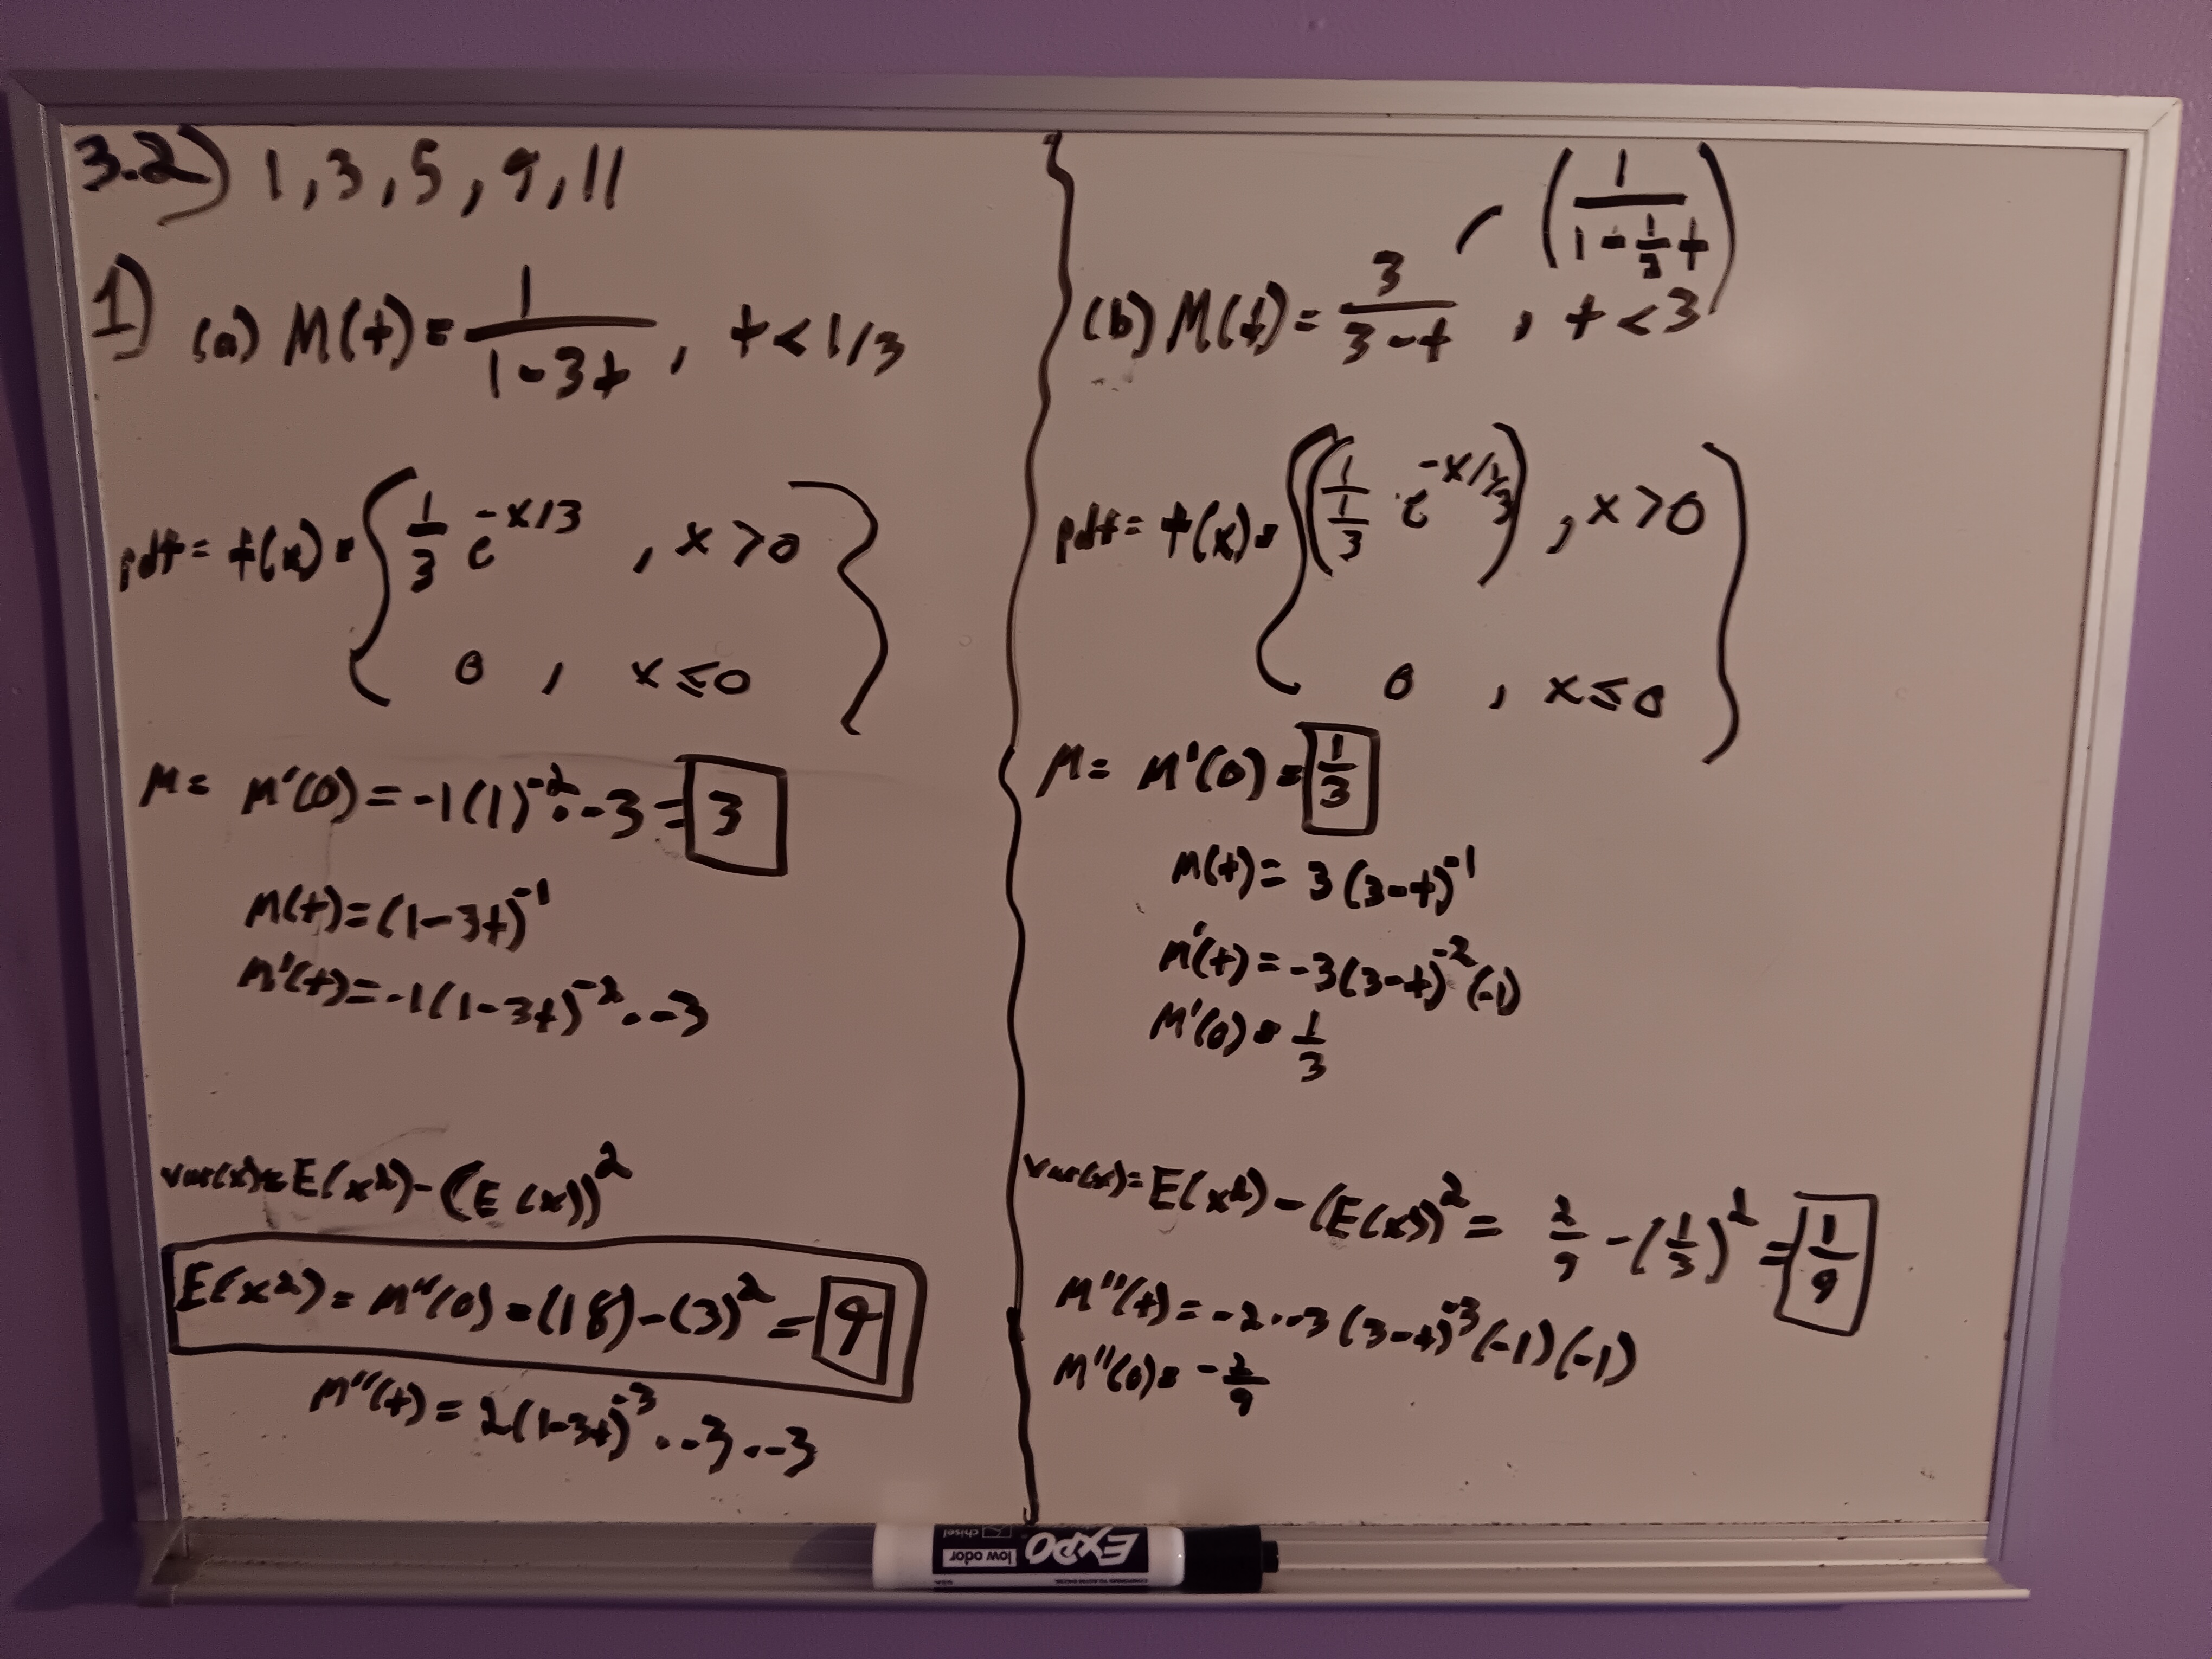 3.2) 1, 3, 5, 9, 11
1) (a) M(t) = 1/(1-3t) , t < 1/3
pdf = f(x) = { 1/3 e^(-x/3) , x > 0
0 , x ≤ 0 }
μ = M'(0) = -1(1)^(-2) · -3 = 3
M(t) = (1-3t)^(-1)
M'(t) = -1(1-3t)^(-2) · -3
var(x) = E(x^2) - (E(x))^2
E(x^2) = M''(0) = (18) - (3)^2 = 9
M''(t) = 2(1-3t)^(-3) · -3 · -3
(1/(1 - 1/3 t))
(b) M(t) = 3/(3-t) , t < 3
pdf = f(x) = { (1/(1/3) · e^(-x/(1/3))) , x > 0
0 , x ≤ 0 }
μ = M'(0) = 1/3
M(t) = 3(3-t)^(-1)
M'(t) = -3(3-t)^(-2) (-1)
M'(0) = 1/3
var(x) = E(x^2) - (E(x))^2 = 2/9 - (1/3)^2 = 1/9
M''(t) = -2 · -3 (3-t)^(-3) (-1)(-1)
M''(0) = -2/9
EXPO
low odor
chisel